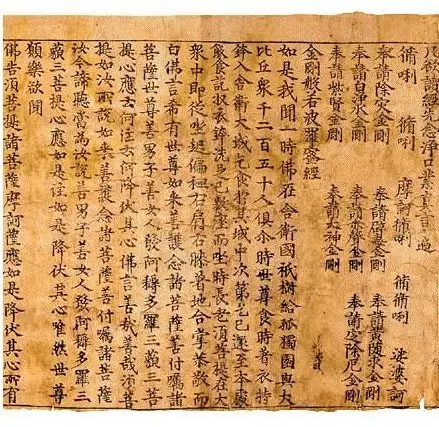 凡欲讀經先念淨口業真言一遍
脩唎 脩唎 摩訶脩唎 脩脩唎 娑婆訶
奉請除灾金剛 奉請辟毒金剛 奉請黃隨求金剛
奉請白淨水金剛 奉請赤聲金剛 奉請定除厄金剛
奉請紫賢金剛 奉請大神金剛
金剛般若波羅蜜經
如是我聞一時佛在舍衛國祇樹給孤獨園與大
比丘衆千二百五十人俱尒時世尊食時著衣持
鉢入舍衛大城乞食於其城中次第乞已還至本處
飯食訖收衣鉢洗足已敷座而坐時長老須菩提在大
衆中即從座起偏袒右肩右膝著地合掌恭敬而
白佛言希有世尊如來善護念諸菩薩善付囑諸
菩薩世尊善男子善女人發阿耨多羅三藐三菩
提心應云何住云何降伏其心佛言善哉善哉須菩
提如汝所說如來善護念諸菩薩善付囑諸菩薩
汝今諦聽當爲汝說善男子善女人發阿耨多羅三
藐三菩提心應如是住如是降伏其心唯然世尊
願樂欲聞
佛告須菩提諸菩薩摩訶薩應如是降伏其心所有